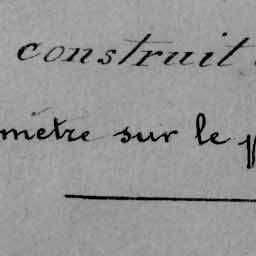 construit
mètre sur le